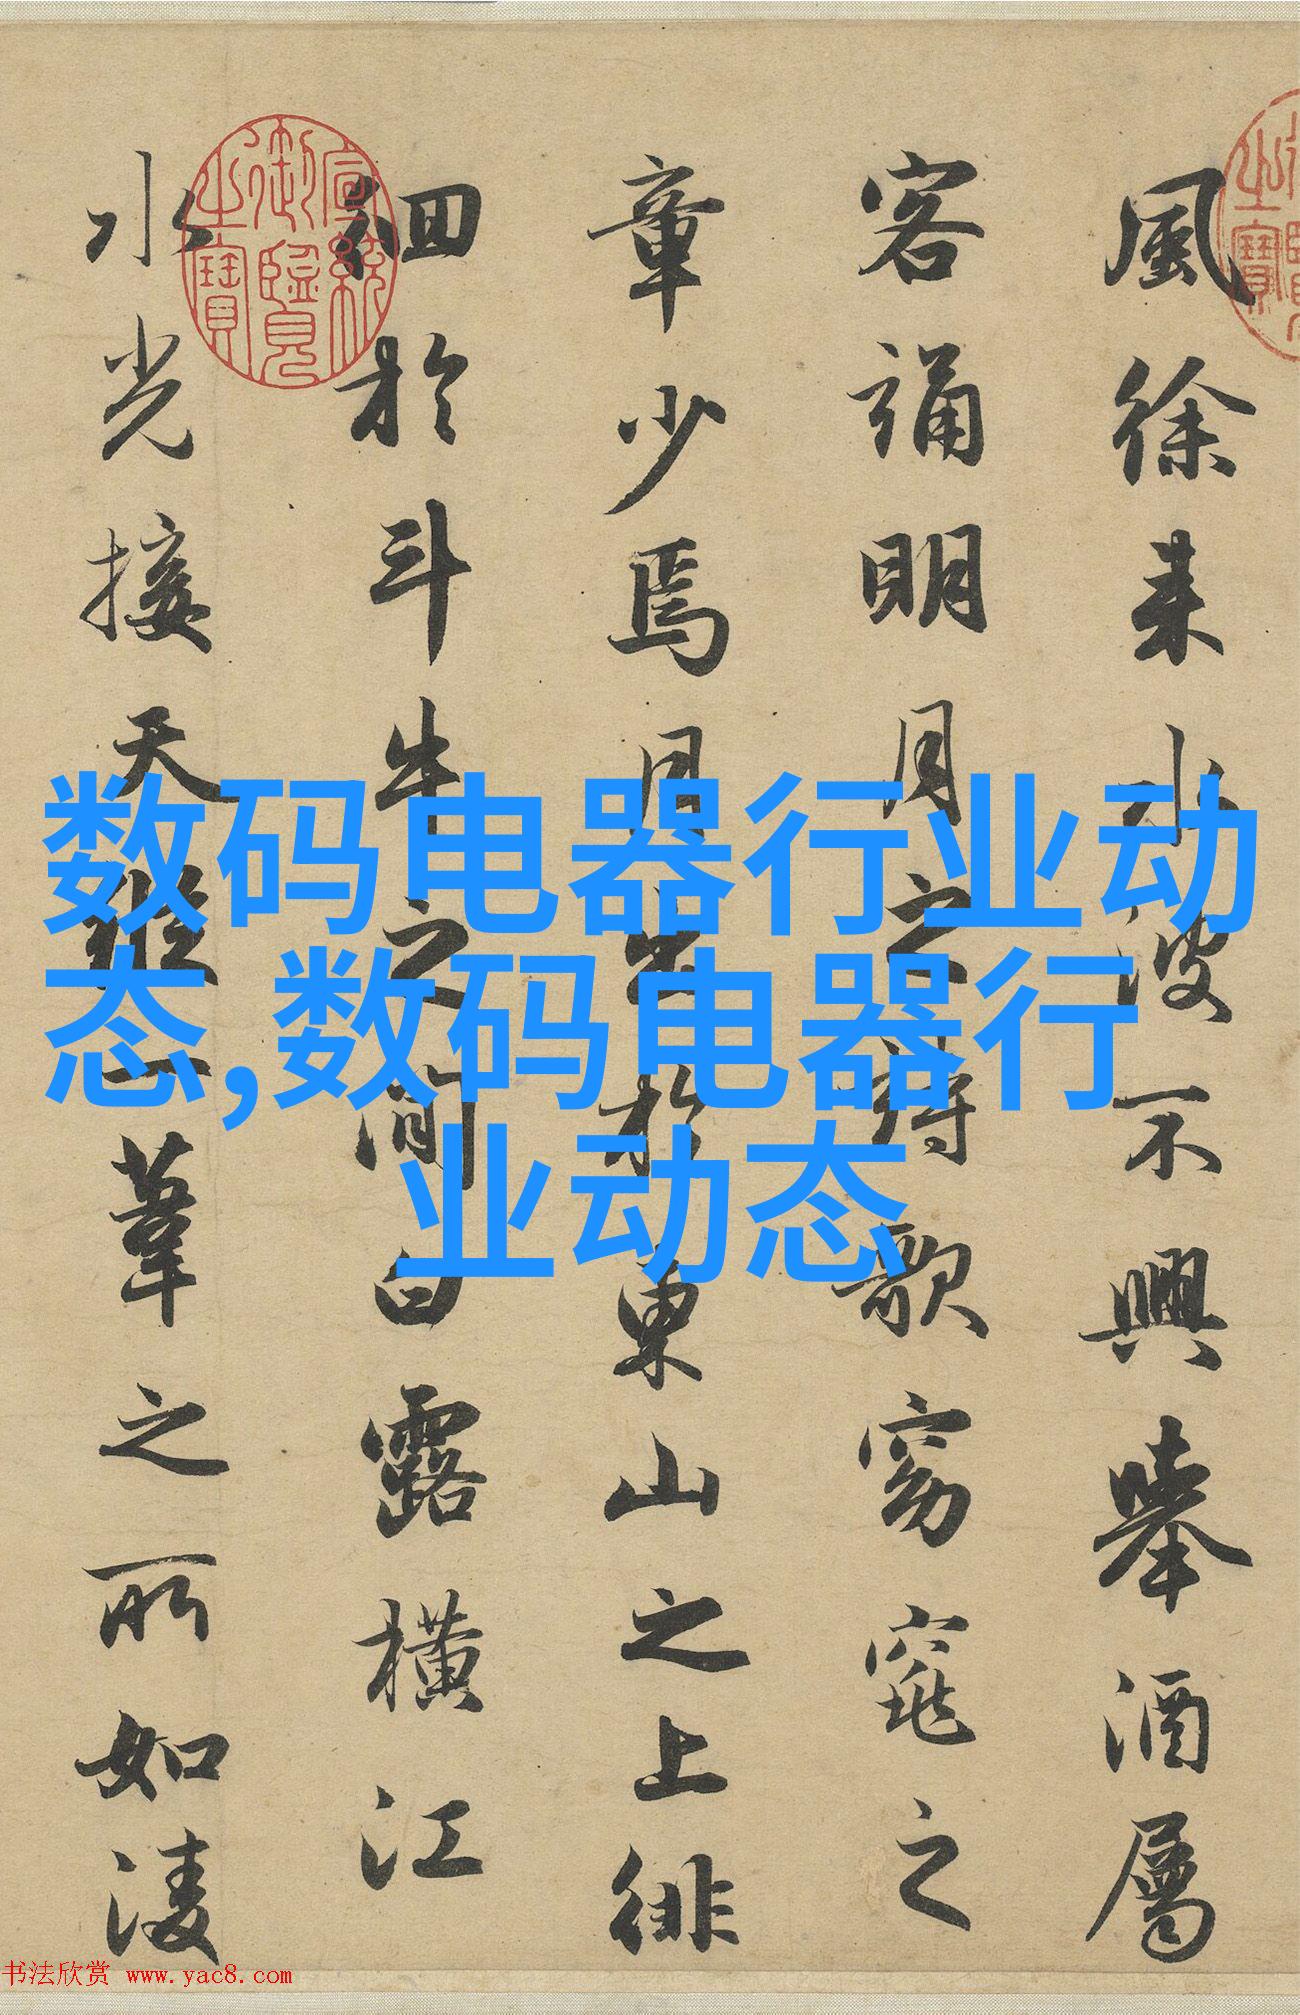 風徐来水波不興舉酒屬
客誦明月之詩歌窈窕之
章少焉月出於東山之上徘
徊於斗牛之間白露橫江
水光接天縱一葦之所如淩
宣統御覽之寶
数码电器行业动
态,数码电器行
业动态
书法欣赏 www.yac8.com